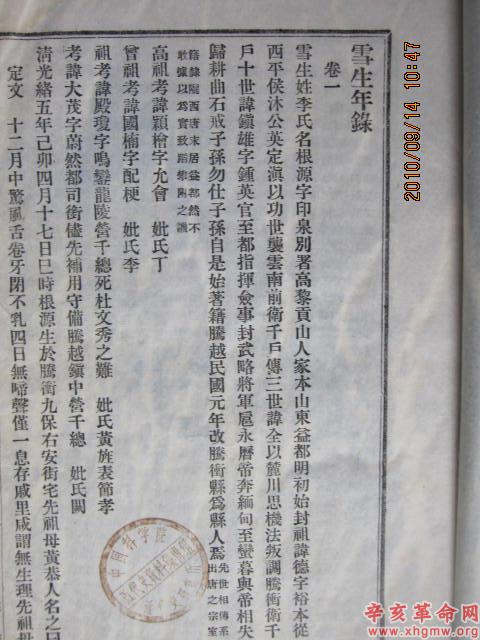 雪生年錄
卷一
雪生姓李氏名根源字印泉別署高黎貢山人家本山東益都明初始封祖諱德字裕本從
西平侯沐公英定滇以功世襲雲南前衛千戶傳三世諱全以麓川思機法叛調騰衝衛千
戶十世諱鎮雄字鍾英官至都指揮僉事封武略將軍扈永曆帝奔緬甸至蠻暮與帝相失
歸耕曲石戒子孫勿仕子孫自是始著籍騰越民國元年改騰衝縣爲縣人焉 先世相傳系
出唐之宗室
籍隸隴西唐末居益都然不
敢據以爲實致蹈攀附之譏
高祖考諱穎檜字允會 妣氏丁
曾祖考諱國楠字配梗 妣氏李
祖考諱殿瓊字鳴鑾龍陵營千總死杜文秀之難 妣氏黃旌表節孝
考諱大茂字蔚然都司銜儘先補用守備騰越鎭中營千總 妣氏闕
清光緒五年己卯四月十七日巳時根源生於騰衝九保右安街宅先祖母黃恭人名之曰
定文 十二月中驚風舌卷牙閉不乳四日無啼聲僅一息存戚里咸謂無生理先祖母
中國科學院
2010/09/14 10:47
辛亥革命网
www.xhgmw.org